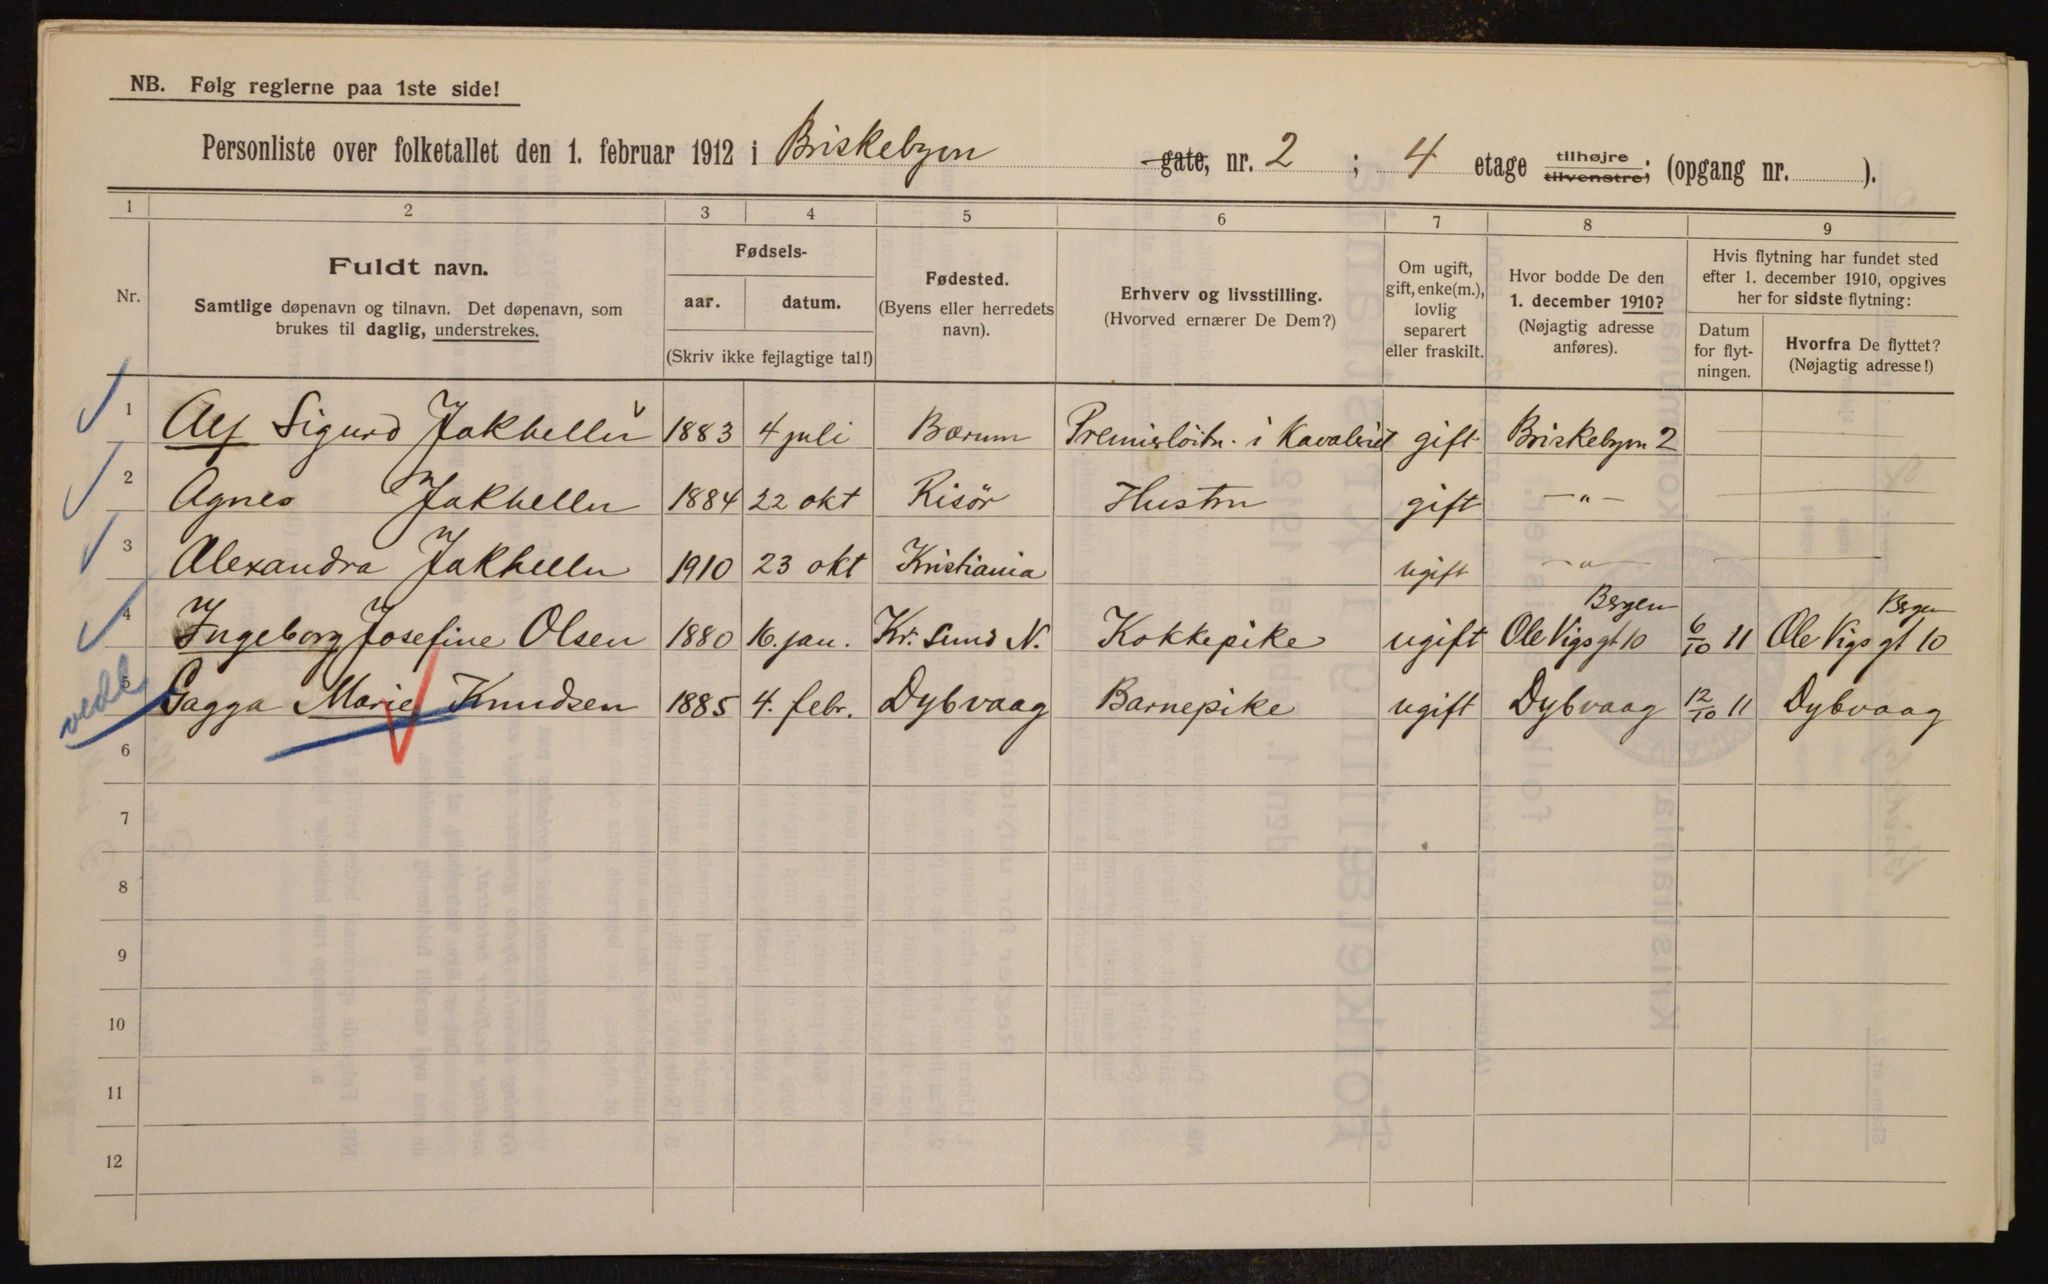 NB. Følg reglerne paa 1ste side!
Personliste over folketallet den 1. februar 1912 i Briskebyen gate, nr. 2 ; 4 etage tilhøjre tilvenstre; (opgang nr. ).
1 2 3 4 5 6 7 8 9
Nr.
Fuldt navn.
Samtlige døpenavn og tilnavn. Det døpenavn, som
brukes til daglig, understrekes.
Fødsels-
aar. datum.
(Skriv ikke fejlagtige tal!)
Fødested.
(Byens eller herredets
navn).
Erhverv og livsstilling.
(Hvorved ernærer De Dem?)
Om ugift,
gift, enke(m.),
lovlig
separert
eller fraskilt.
Hvor bodde De den
1. december 1910?
(Nøjagtig adresse
anføres).
Hvis flytning har fundet sted
efter 1. december 1910, opgives
her for sidste flytning:
Datum
for flyt-
ningen.
Hvorfra De flyttet?
(Nøjagtig adresse!)
1 Alf Sigurd Jakhelln 1883 4 juli Bærum Premierløitn. i Kavaleriet gift Briskebyen 2
2 Agnes Jakhelln 1884 22 okt Risör Hustru gift —"—
3 Alexandra Jakhelln 1910 23 okt Kristiania ugift —"—
4 Ingeborg Josefine Olsen 1880 16. jan. Kr. Sund N. Kokkepike ugift Ole Vigs gt 10 Bergen 6/10 11 Ole Vigs gt 10 Bergen
5 Gagga Marie Knudsen 1885 4. febr. Dybvaag Barnepike ugift Dybvaag 12/10 11 Dybvaag
6
7
8
9
10
11
12